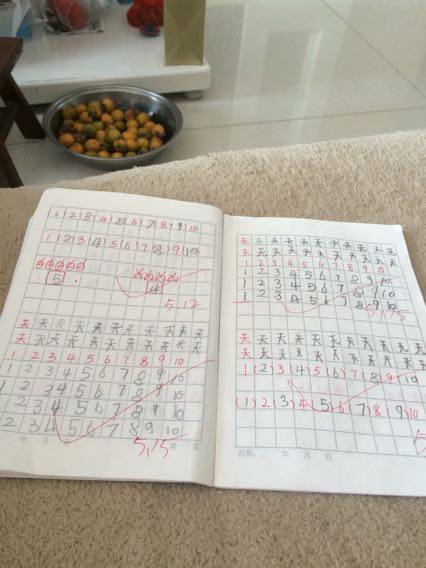 (1)(2)(3)(4)(5)(6)(7)(8)(9)(10)
1 2 3 4 5 6 7 8 9 10
5 4
5.12
天 天 天 天 天 天 天 天 天 天
天 天 天 天 天 天 天 天 天 天
1 2 3 4 5 6 7 8 9 10
1 2 3 4 5 6 7 8 9 10
1 2 3 4 5 6 7 8 9 10
1 2 3 4 5 6 7 8 9 10
2 3 4 5 6 7 8 9 10
年 月
5.15
天 天 天 天 天 天 天 天 天 天
天 天 天 天 天 天 天 天 天 天
1 2 3 4 5 6 7 8 9 10
1 2 3 4 5 6 7 8 9 10
1 2 3 4 5 6 7 8 9 10
1 2 3 4 5 6 7 8 9 10
天 天 天 天 天 天 天 天 天 天
天 天 天 天 天 天 天 天 天 天
1(2)(3)(4)(5)(6)7(8)(9)10
(1)2(3)4(5)6(7)8(9)10
日期: 年 月 日